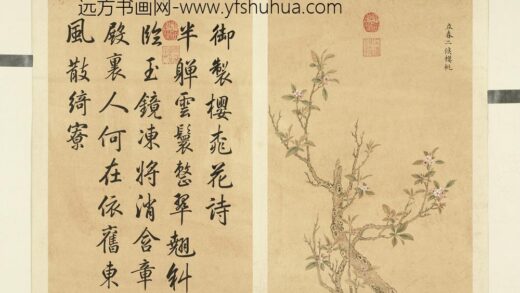 远方书画网-www.yfshuhua.com
立春二候櫻桃
御製櫻桃花詩
半軃雲鬟整翠翹斜
臨玉鏡凍將消含章
殿裏人何在依舊東
風散綺寮